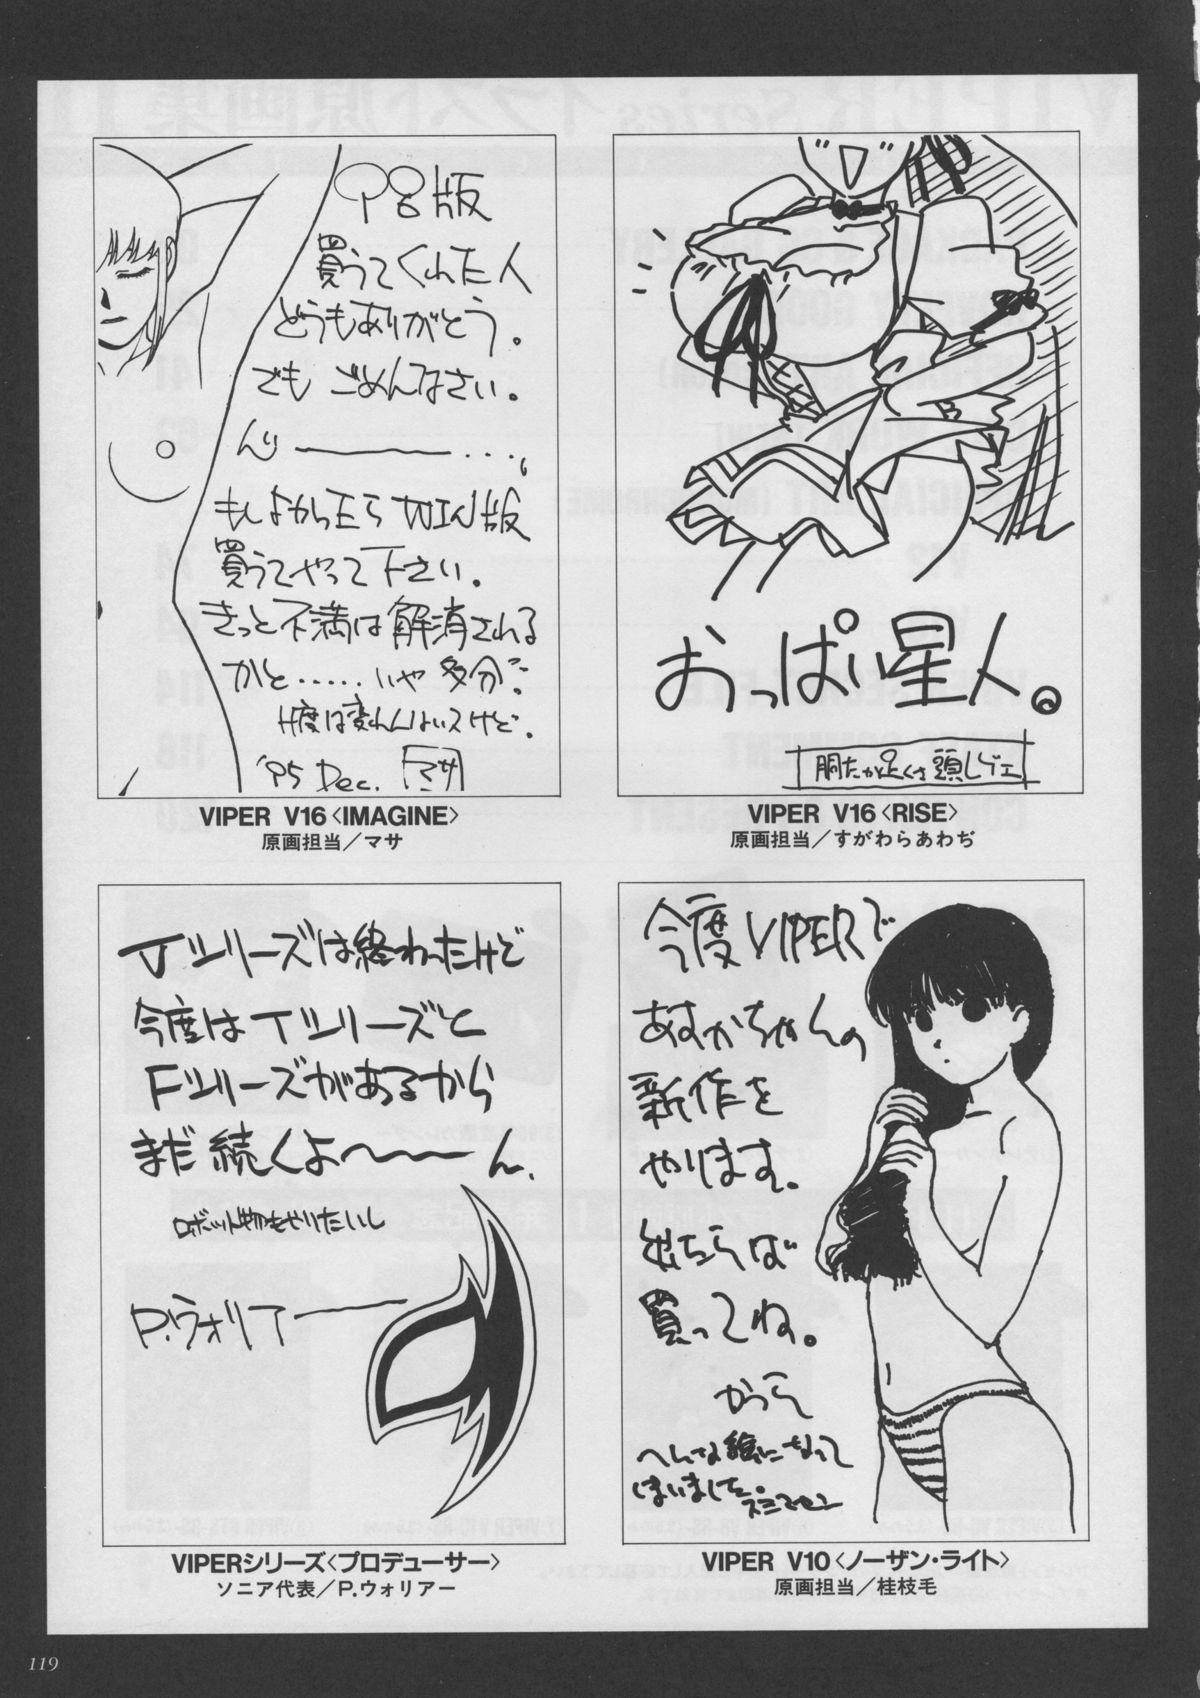 P98版
買うてくれた人
どうもありがとう。
でも ごめんなさい。
もしよかったら WIN版
買うてやって下さい。
きっと不満は解消される
かと……いや 多分…
'95 Dec. マサ
VIPER V16〈IMAGINE〉
原画担当／マサ
おっぱい星人。
VIPER V16〈RISE〉
原画担当／すがわらあわぢ
Vシリーズは終わったけど
今度はTシリーズと
Fシリーズがあるから
まだ続くよ〜〜〜ん。
ロボット物もやりたいし
P.ウォリアー
VIPERシリーズ〈プロデューサー〉
ソニア代表／P.ウォリアー
今度VIPERで
あすかちゃんの
新作を
やります。
出たらば
買ってね。
かつら
へんな絵になって
しまいました。スミマセン
VIPER V10〈ノーザン・ライト〉
原画担当／桂枝毛
119